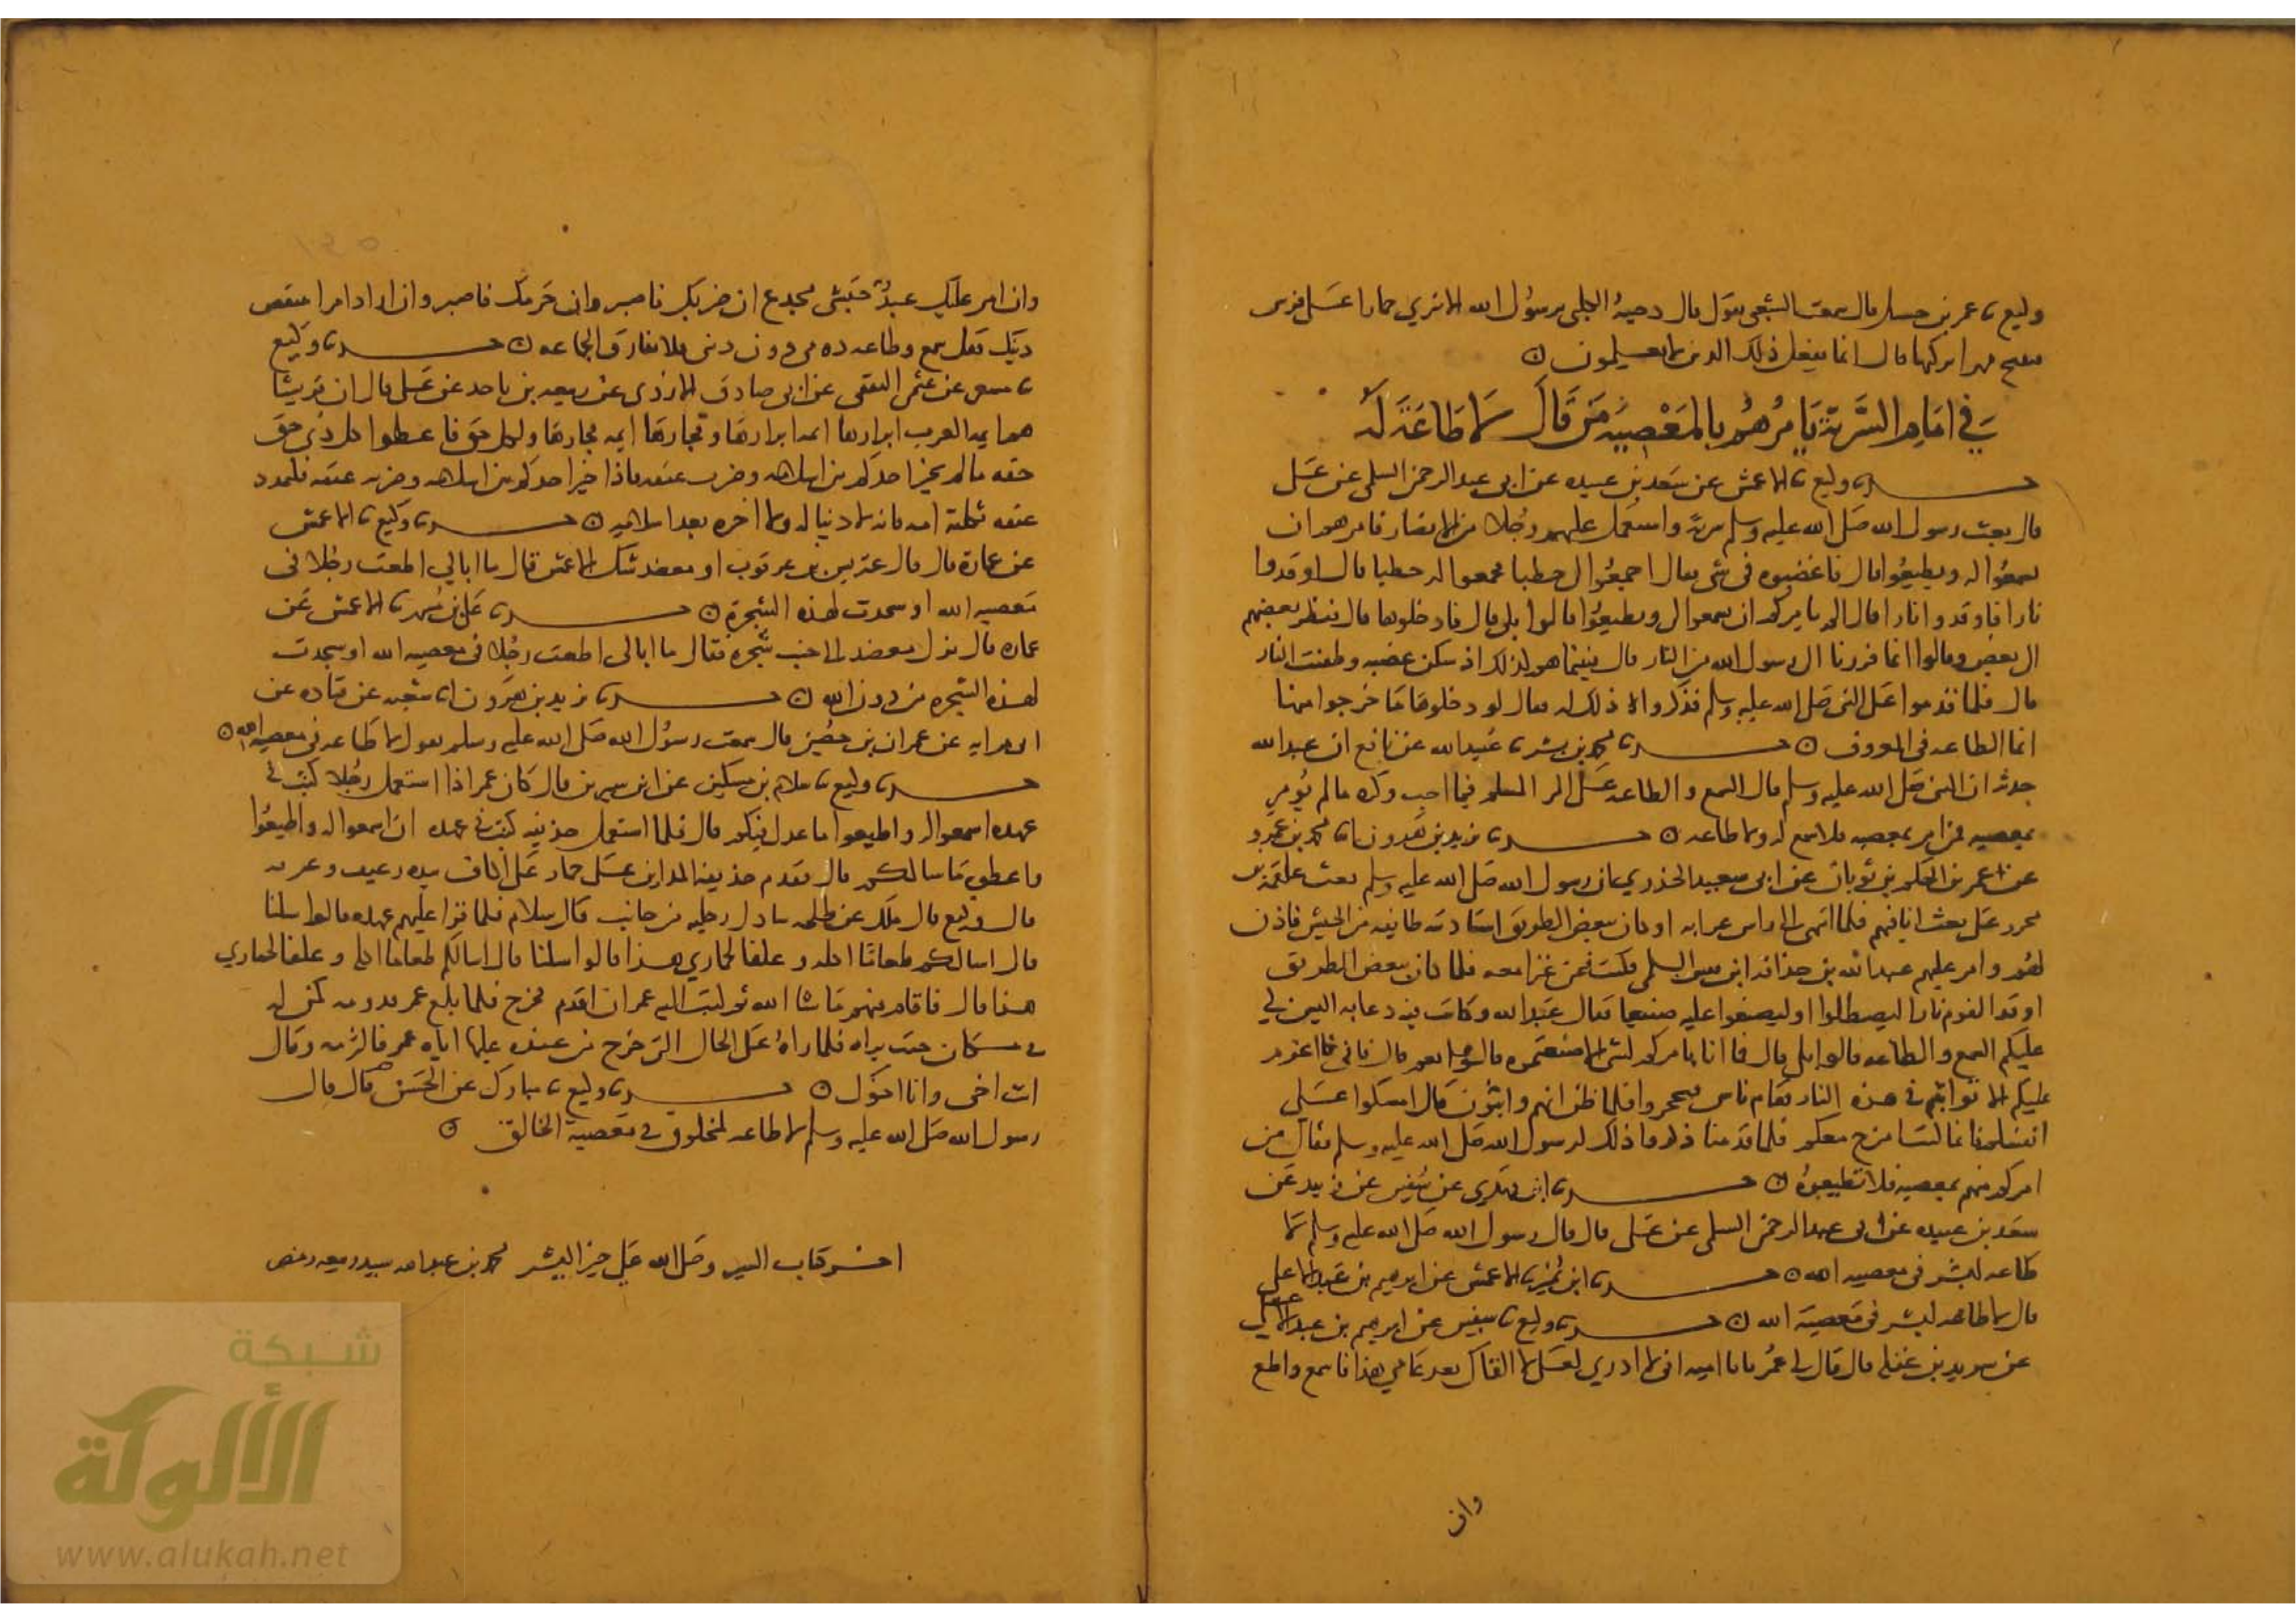 وكيع ثنا عمر بن حسيل قال سمعت الشعبي يقول قال دحية الكلبي يرسول الله الا ننزي حمارا على فرس
فتنتج مهرا نركبها قال انما يفعل ذلك الذين لا يعلمون
في امام السرية يامرهم بالمعصية من قال لا طاعة له
حدثنا وكيع ثنا الاعمش عن سعد بن عبيده عن ابي عبد الرحمن السلمي عن علي
قال بعث رسول الله صلى الله عليه وسلم سرية واستعمل عليهم رجلا من الانصار فامرهم ان
يسمعوا له ويطيعوا قال فاغضبوه في شي فقال اجمعوا لي حطبا فجمعوا له حطبا قال اوقدوا
نارا فاوقدوا نارا قال الم يامركم ان تسمعوا لي وتطيعوا قالوا بلى قال فادخلوها قال فنظر بعضهم
الى بعض وقالوا انما فررنا الى رسول الله من النار قال فبينما هم كذلك اذ سكن غضبه وطفئت النار
قال فلما قدموا على النبي صلى الله عليه وسلم فذكروا ذلك له فقال لو دخلوها ما خرجوا منها
انما الطاعه في المعروف حدثنا محمد بن بشر ثنا عبيد الله عن نافع ان عبد الله
حدثه ان النبي صلى الله عليه وسلم قال السمع والطاعه على المر المسلم فيما احب وكره ما لم يؤمر
بمعصيه فمن امر بمعصيه فلا سمع له ولا طاعه حدثنا يزيد بن هرون انا محمد بن عمرو
عن عمر بن الحكم بن ثوبان عن ابي سعيد الخذري ان رسول الله صلى الله عليه وسلم بعث علقمة بن
محرر على بعث انا فيهم فلما انتهى الى راس غزاته او كان ببعض الطريق استاذنته طائفه من الجيش فاذن
لهم وامر عليهم عبد الله بن حذافه ابن قيس السهمي فكنت فيمن غزا معه فلما كان ببعض الطريق
اوقد القوم نارا ليصطلوا او ليصنعوا عليه صنيعا فقال عبد الله وكانت فيه دعابه اليس لي
عليكم السمع والطاعه قالوا بلى قال فما انا بامركم لشي الا صنعتموه قالوا نعم قال فاني اعزم
عليكم الا تواثبتم في هذه النار فقام ناس فتحجزوا فلما ظن انهم واثبون قال امسكوا على
انفسكم فانما كنت امزح معكم فلما قدمنا ذكروا ذلك لرسول الله صلى الله عليه وسلم فقال من
امركم منهم بمعصيه فلا تطيعوه حدثنا ابن مهدي عن سفين عن زبيد عن
سعد بن عبيده عن ابي عبد الرحمن السلمي عن علي قال قال رسول الله صلى الله عليه وسلم لا
طاعه لبشر في معصيه الله حدثنا ابن نمير ثنا الاعمش عن ابرهيم بن عبد الاعلى
قال لا طاعه لبشر في معصية الله حدثنا وكيع ثنا سفين عن ابرهيم بن عبد الاعلى
عن سويد بن غفله قال قال لي عمر يابا اميه اني لا ادري لعلي لا القاك بعد عامي هذا فاسمع واطع
وان
وان امر عليك عبد حبشي مجدع ان ضربك فاصبر وان حرمك فاصبر وان اراد امرا ينقص
دينك فقل سمع وطاعه دمي دون ديني فلا تفارق الجماعه حدثنا وكيع
ثنا مسعر عن عثمن الثقفي عن ابي صادق الازدي عن ربيعه بن ناجد عن علي قال ان قريشا
هم ايمة العرب ابرارها ايمة ابرارها وفجارها ايمة فجارها ولكل حق فاعطوا كل ذي حق
حقه ما لم يخير احدكم بين اسلامه وضرب عنقه فاذا خير احدكم بين اسلامه وضرب عنقه فليمدد
عنقه ثكلته امه فانه لا دنيا له ولا اخره بعد اسلامه حدثنا وكيع ثنا الاعمش
عن عمارة قال قال عتريس بن عرقوب او معضد شك الاعمش قال ما ابالي اطعت رجلا في
معصيه الله او سجدت لهذه الشجرة حدثنا علي بن مسهر ثنا الاعمش عن
عماره قال نزل معضد الى جنب شجره فقال ما ابالي اطعت رجلا في معصيه الله او سجدت
لهذه الشجره من دون الله حدثنا يزيد بن هرون انا شعبه عن قتاده عن
ابي مرايه عن عمران بن حصين قال سمعت رسول الله صلى الله عليه وسلم يقول لا طاعه في معصيه الله
حدثنا وكيع ثنا سلام بن مسكين عن ابن سيرين قال كان عمر اذا استعمل رجلا كتب في
عهده اسمعوا له واطيعوا ما عدل فيكم قال فلما استعمل حذيفه كتب في عهده ان اسمعوا له واطيعوا
واعطوه ما سالكم قال فقدم حذيفه المداين على حمار على اكاف بيده رغيف وعرق
قال وكيع قال ملك عن طلحه سادل رجليه من جانب قال سلام فلما قرا عليهم عهده قالوا سلنا
قال اسالكم طعاما اكله وعلفا لحماري هذا قالوا سلنا قال اسالكم طعاما اكله وعلفا لحماري
هذا قال فاقام فيهم ما شا الله ثم كتب اليه عمر ان اقدم فخرج فلما بلغ عمر قدومه كمن له
في مكان حيث يراه فلما راه على الحال التي خرج من عنده عليها اتاه عمر فالتزمه وقال
انت اخي وانا اخوك حدثنا وكيع ثنا مبارك عن الحسن قال قال
رسول الله صلى الله عليه وسلم لا طاعه لمخلوق في معصية الخالق
اخر كتاب السير وصلى الله على خير البشر محمد بن عبد الله سيد ربيعه ومضر
شبكة
الألوكة
www.alukah.net